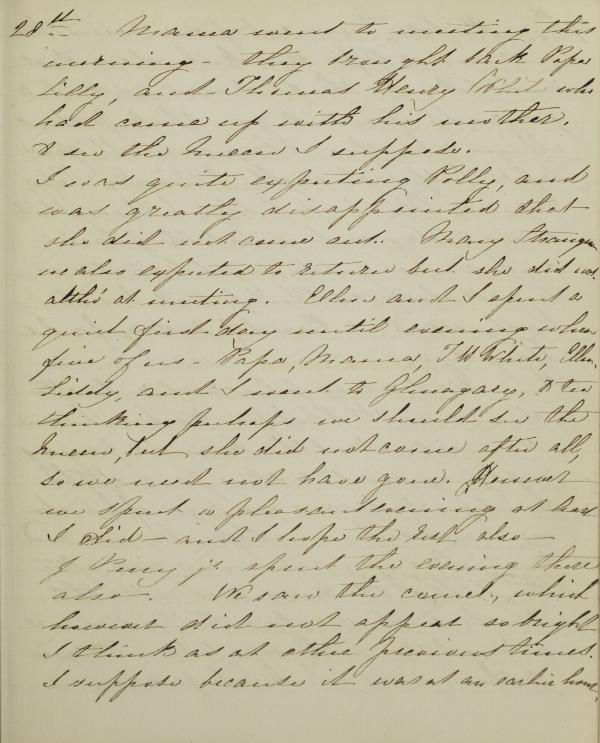 28th Mama went to meeting this
morning - they brought back Papa
Lilly, and Thomas Henry White who
had come up with his mother.
to see the Queen I suppose.
I was quite expecting Polly, and
was greatly disappointed that
she did not come out. Mary Strangman
we also expected to return but she did not
altho' at meeting. Ellen and I spent a
quiet first day until evening when
five of us - Papa, Mama, T H White, Ellen
Liddy, and I went to Glenagary, to tea
thinking perhaps we should see the
Queen, but she did not come after all,
so we need not have gone. However
we spent a pleasant evening at least
I did - and I hope the rest also -
J Penny jr. spent the evening there
also. We saw the comet, which
however did not appear so bright
I think as at other previous times.
I suppose because it was at an earlier hour.